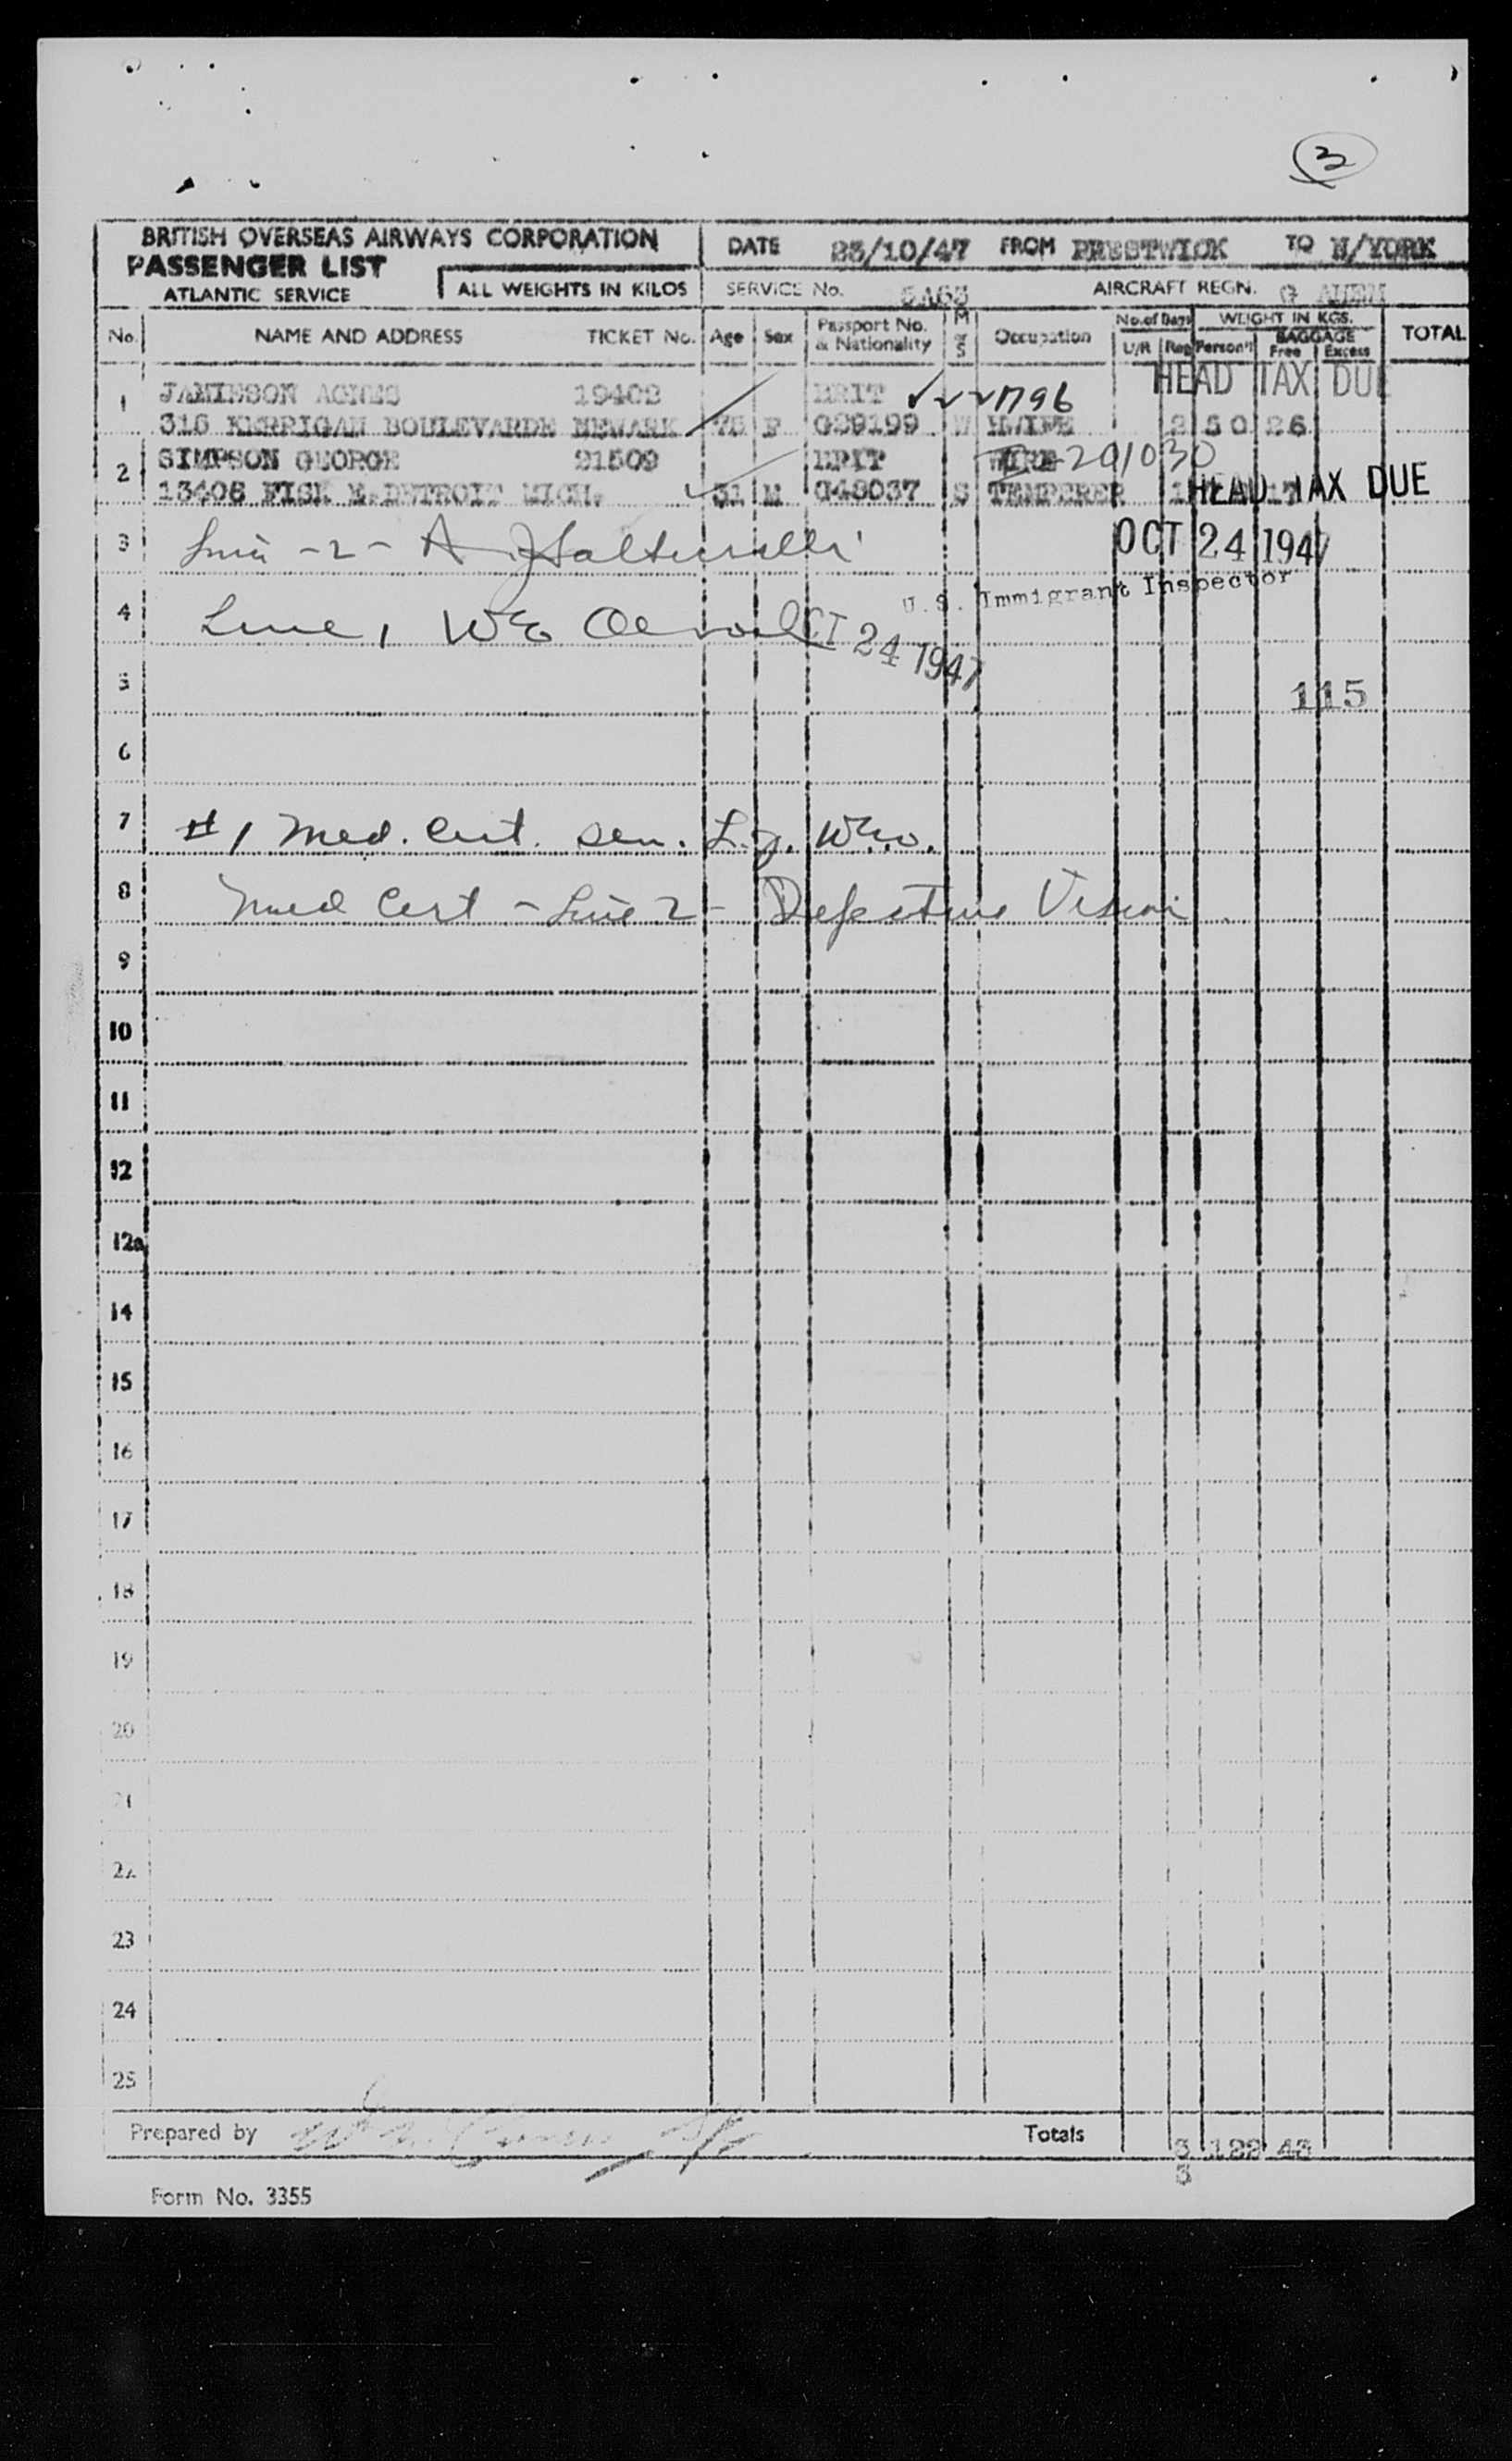 3
BRITISH OVERSEAS AIRWAYS CORPORATION
PASSENGER LIST
ATLANTIC SERVICE
ALL WEIGHTS IN KILOS
DATE 23/10/47 FROM PRESTWICK TO N/YORK
SERVICE No. AIRCRAFT REGN. G
No. NAME AND ADDRESS TICKET No. Age Sex Passport No. & Nationality M or S Occupation No. of Days U/R Reg WEIGHT IN KGS. Person'l BAGGAGE Free Excess TOTAL
HEAD TAX DUE
1 JAMIESON AGNES 19402 BRIT 1796
316 KERRIGAN BOULEVARDE NEWARK 75 F G29199 W H/WIFE 2 50 26
2 SIMPSON GEORGE 21509 BRIT WIRE 291030
13406 FISK E. DETROIT MICH. 31 M S TEMPERER HEAD TAX DUE
3 Line -2- A. OCT 24 1947
U.S. Immigrant Inspector
4 Line 1 OCT 24 1947
5 115
6
7 #1 Med. Cert. Sen.
8 Med Cert - Line 2 - Defective Vision
9
10
11
12
12a
14
15
16
17
18
19
20
21
22
23
24
25
Prepared by Totals 3 122 43
3
Form No. 3355